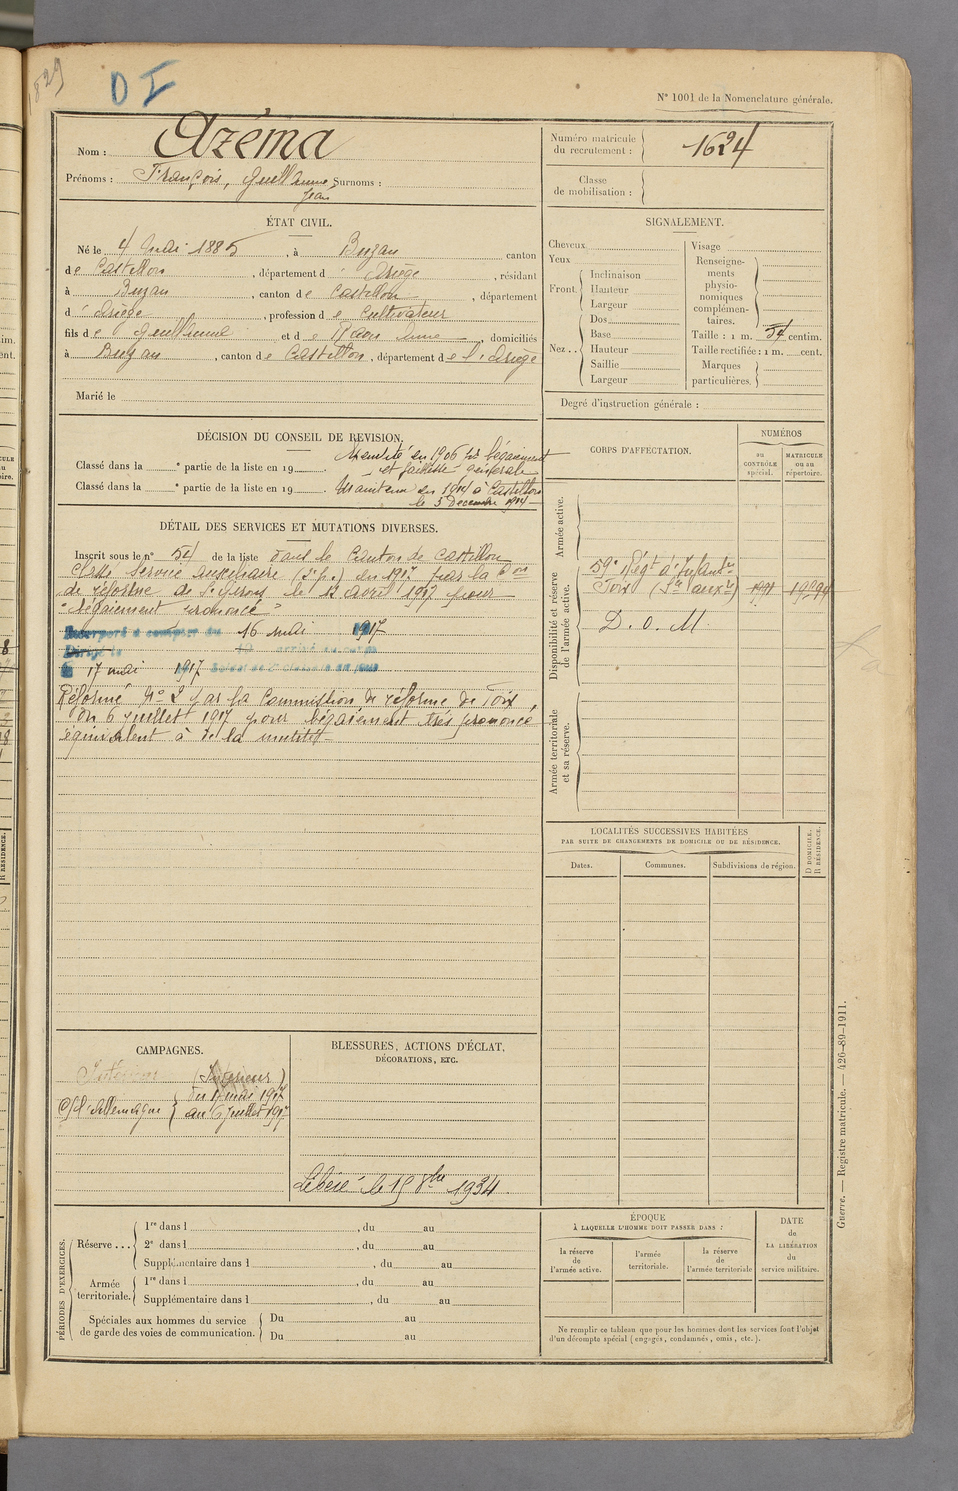 829
D I
N° 1001 de la Nomenclature générale.
Nom : Azéma
Prénoms : François, Guillaume, Surnoms :
Jean
Numéro matricule du recrutement : 1624
Classe de mobilisation :
ÉTAT CIVIL.
Né le 4 Mai 1885, à Buzan canton
de Castillon, département d'Ariège, résidant
à Buzan, canton de Castillon, département
d'Ariège, profession de Cultivateur
fils de Guillaume et de Anne, domiciliés
à Buzan, canton de Castillon, département de l'Ariège
Marié le
SIGNALEMENT.
Cheveux
Yeux
Front. Inclinaison
Hauteur
Largeur
Nez.. Dos
Base
Hauteur
Saillie
Largeur
Visage
Renseignements physionomiques complémentaires.
Taille : 1 m. 54 centim.
Taille rectifiée : 1 m. cent.
Marques particulières.
Degré d'instruction générale :
DÉCISION DU CONSEIL DE REVISION.
Exempté en 1906 pr bégaiement
et faiblesse générale
Classé dans la e partie de la liste en 19 .
Classé dans la e partie de la liste en 19 . Maintenu en 1914 à Castillon
le 5 Décembre 1914
DÉTAIL DES SERVICES ET MUTATIONS DIVERSES.
Inscrit sous le n° 54 de la liste dans le Canton de Castillon
Classé Service auxiliaire (2e p.) en 1917 par la Con
de réforme de St Girons le 12 avril 1917 pour
"bégaiement prononcé"
Incorporé à compter du 16 mai 1917
17 mai 1917
Réformé N° 2 par la Commission de réforme de Foix,
du 6 juillet 1917 pour bégaiement très prononcé
équivalent à de la mutité
CORPS D'AFFECTATION.
NUMÉROS
au CONTRÔLE spécial.
MATRICULE ou au répertoire.
Armée active.
Disponibilité et réserve de l'armée active.
59e Régt d'Infanterie
Foix (Sce auxre)
D. o. M.
Armée territoriale et sa réserve.
LOCALITÉS SUCCESSIVES HABITÉES
PAR SUITE DE CHANGEMENTS DE DOMICILE OU DE RÉSIDENCE.
Dates.
Communes.
Subdivisions de région.
D DOMICILE.
R RÉSIDENCE.
CAMPAGNES.
Intérieur (Intérieur)
C/ l'Allemagne du 17 mai 1917
au 6 Juillet 1917
BLESSURES, ACTIONS D'ÉCLAT,
DÉCORATIONS, ETC.
Libéré le 15 8bre 1934
PÉRIODES D'EXERCICES.
Réserve ... 1re dans l , du au
2e dans l , du au
Supplémentaire dans l , du au
Armée territoriale. 1re dans l , du au
Supplémentaire dans l , du au
Spéciales aux hommes du service de garde des voies de communication. Du au
Du au
ÉPOQUE
À LAQUELLE L'HOMME DOIT PASSER DANS :
la réserve de l'armée active.
l'armée territoriale.
la réserve de l'armée territoriale
DATE de LA LIBÉRATION du service militaire.
Ne remplir ce tableau que pour les hommes dont les services font l'objet
d'un décompte spécial (engagés, condamnés, omis, etc.).
Guerre. — Registre matricule. — 426-89-1911.